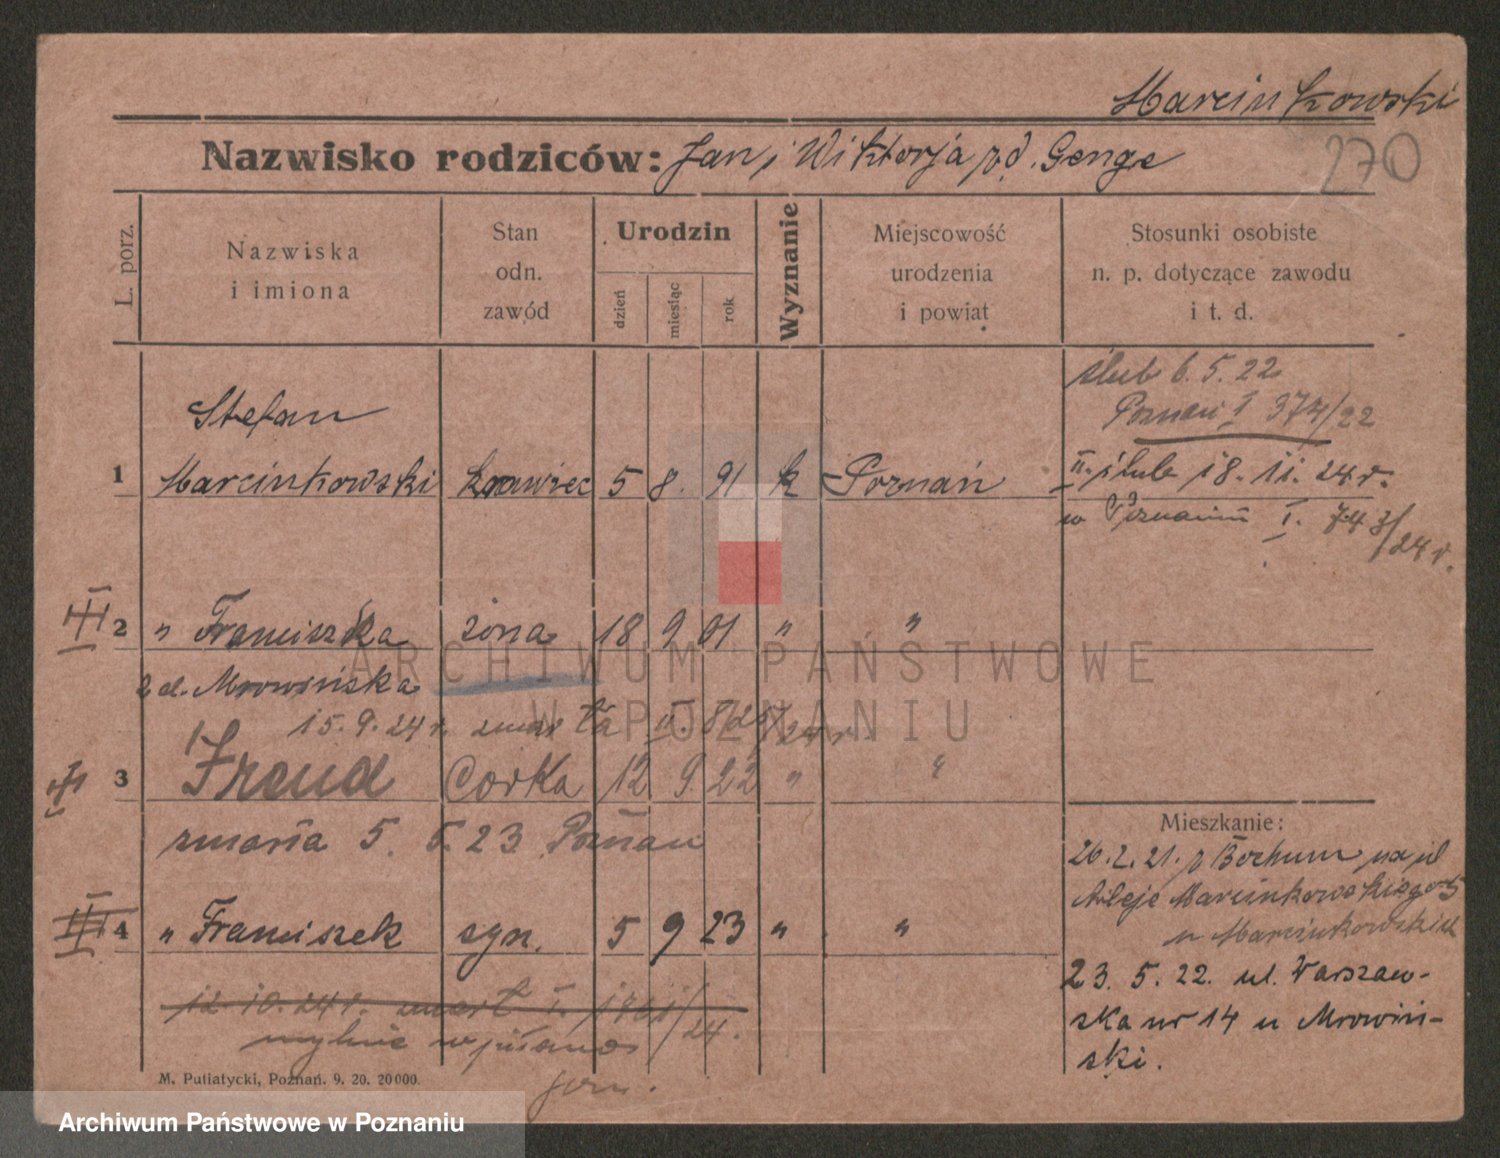 Marcinkowski
Nazwisko rodziców: Jan i Wiktorja z d. Genge
270
L. porz.
Nazwiska i imiona
Stan odn. zawód
Urodzin
dzień miesiąc rok
Wyznanie
Miejscowość urodzenia i powiat
Stosunki osobiste n. p. dotyczące zawodu i t. d.
ślub 6. 5. 22
Poznań I 374/22
Stefan
1 Marcinkowski krawiec 5 8. 91 k Poznań
II. ślub 18. 11. 24 r.
w Poznaniu I. 743/24 r.
III 2 " Franciszka żona 18 9 01 " "
z d. Mrowińska
15. 9. 24 r. zmarła
3 córka 12 9. 22 " "
zmarła 5. 5. 23 Poznań
III 4 " Franciszek syn. 5 9 23 " "
12 10. 24 r. zmarł I. /24.
mylnie wpisano
Mieszkanie:
26. 2. 21. z Bochum na ul
Aleje Marcinkowskiego 5
u Marcinkowskich
23. 5. 22. ul. Warszaw-
ska nr 14 u Mrowiń-
ski.
M. Putiatycki, Poznań. 9. 20. 20000.
ARCHIWUM PAŃSTWOWE
W POZNANIU
Archiwum Państwowe w Poznaniu